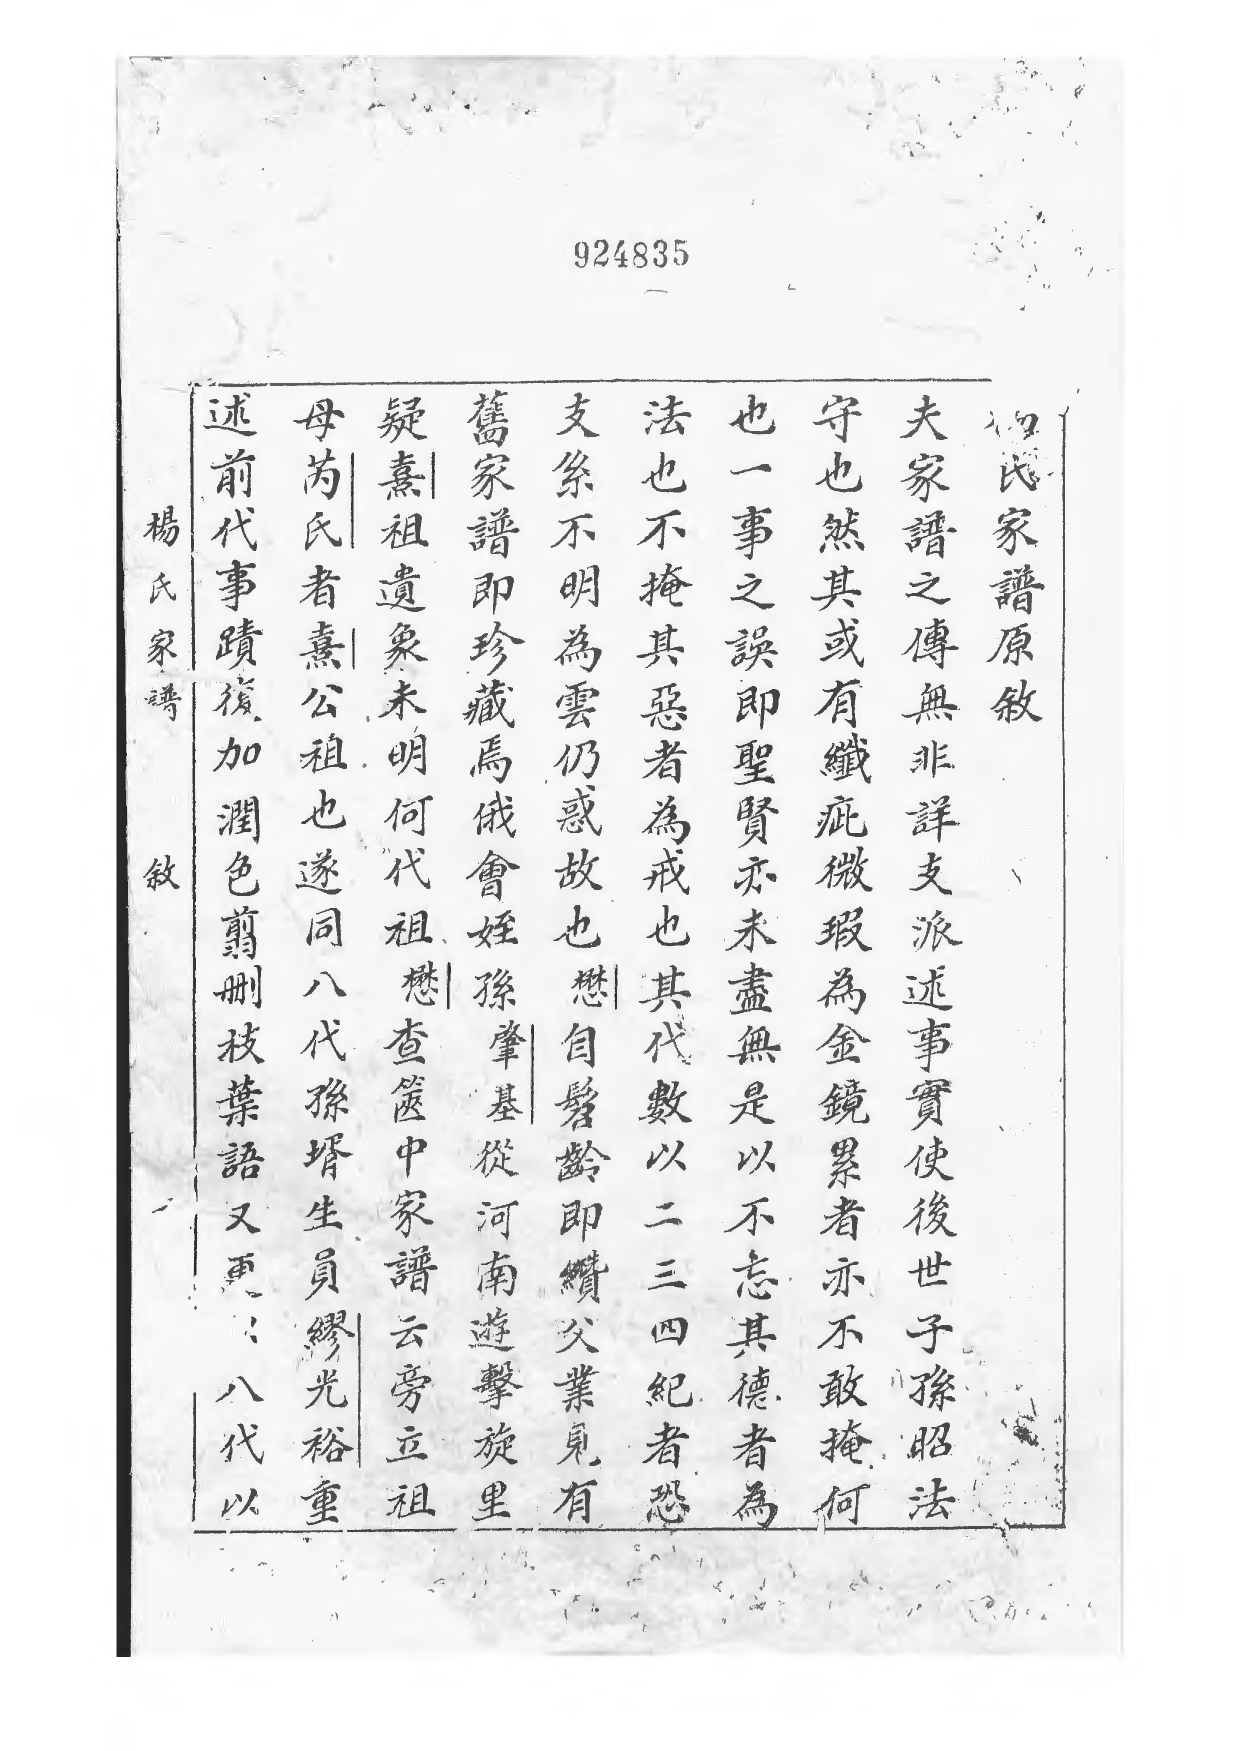 924835
氏家譜原敘
夫家譜之傳無非詳支派述事實使後世子孫昭法
守也然其或有纖疵微瑕為金鏡累者亦不敢掩何
也一事之誤即聖賢亦未盡無是以不忘其德者為
法也不掩其惡者為戒也其代數以二三四紀者恐
支系不明為雲仍惑故也懋自髫齡即纘父業見有
舊家譜即珍藏焉俄會姪孫肇基從河南遊擊旋里
疑熹祖遺象未明何代祖懋查篋中家譜云旁立祖
母芮氏者熹公祖也遂同八代孫壻生員繆光裕重
述前代事蹟復加潤色翦刪枝葉語又更八代以
楊氏家譜 敘